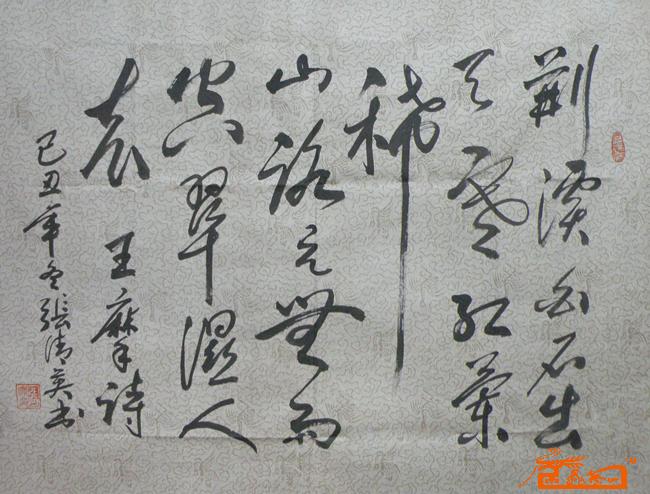 荆溪白石出
天寒红葉
稀
山路元無雨
空翠濕人
衣 王摩詩
己丑年冬張清英书